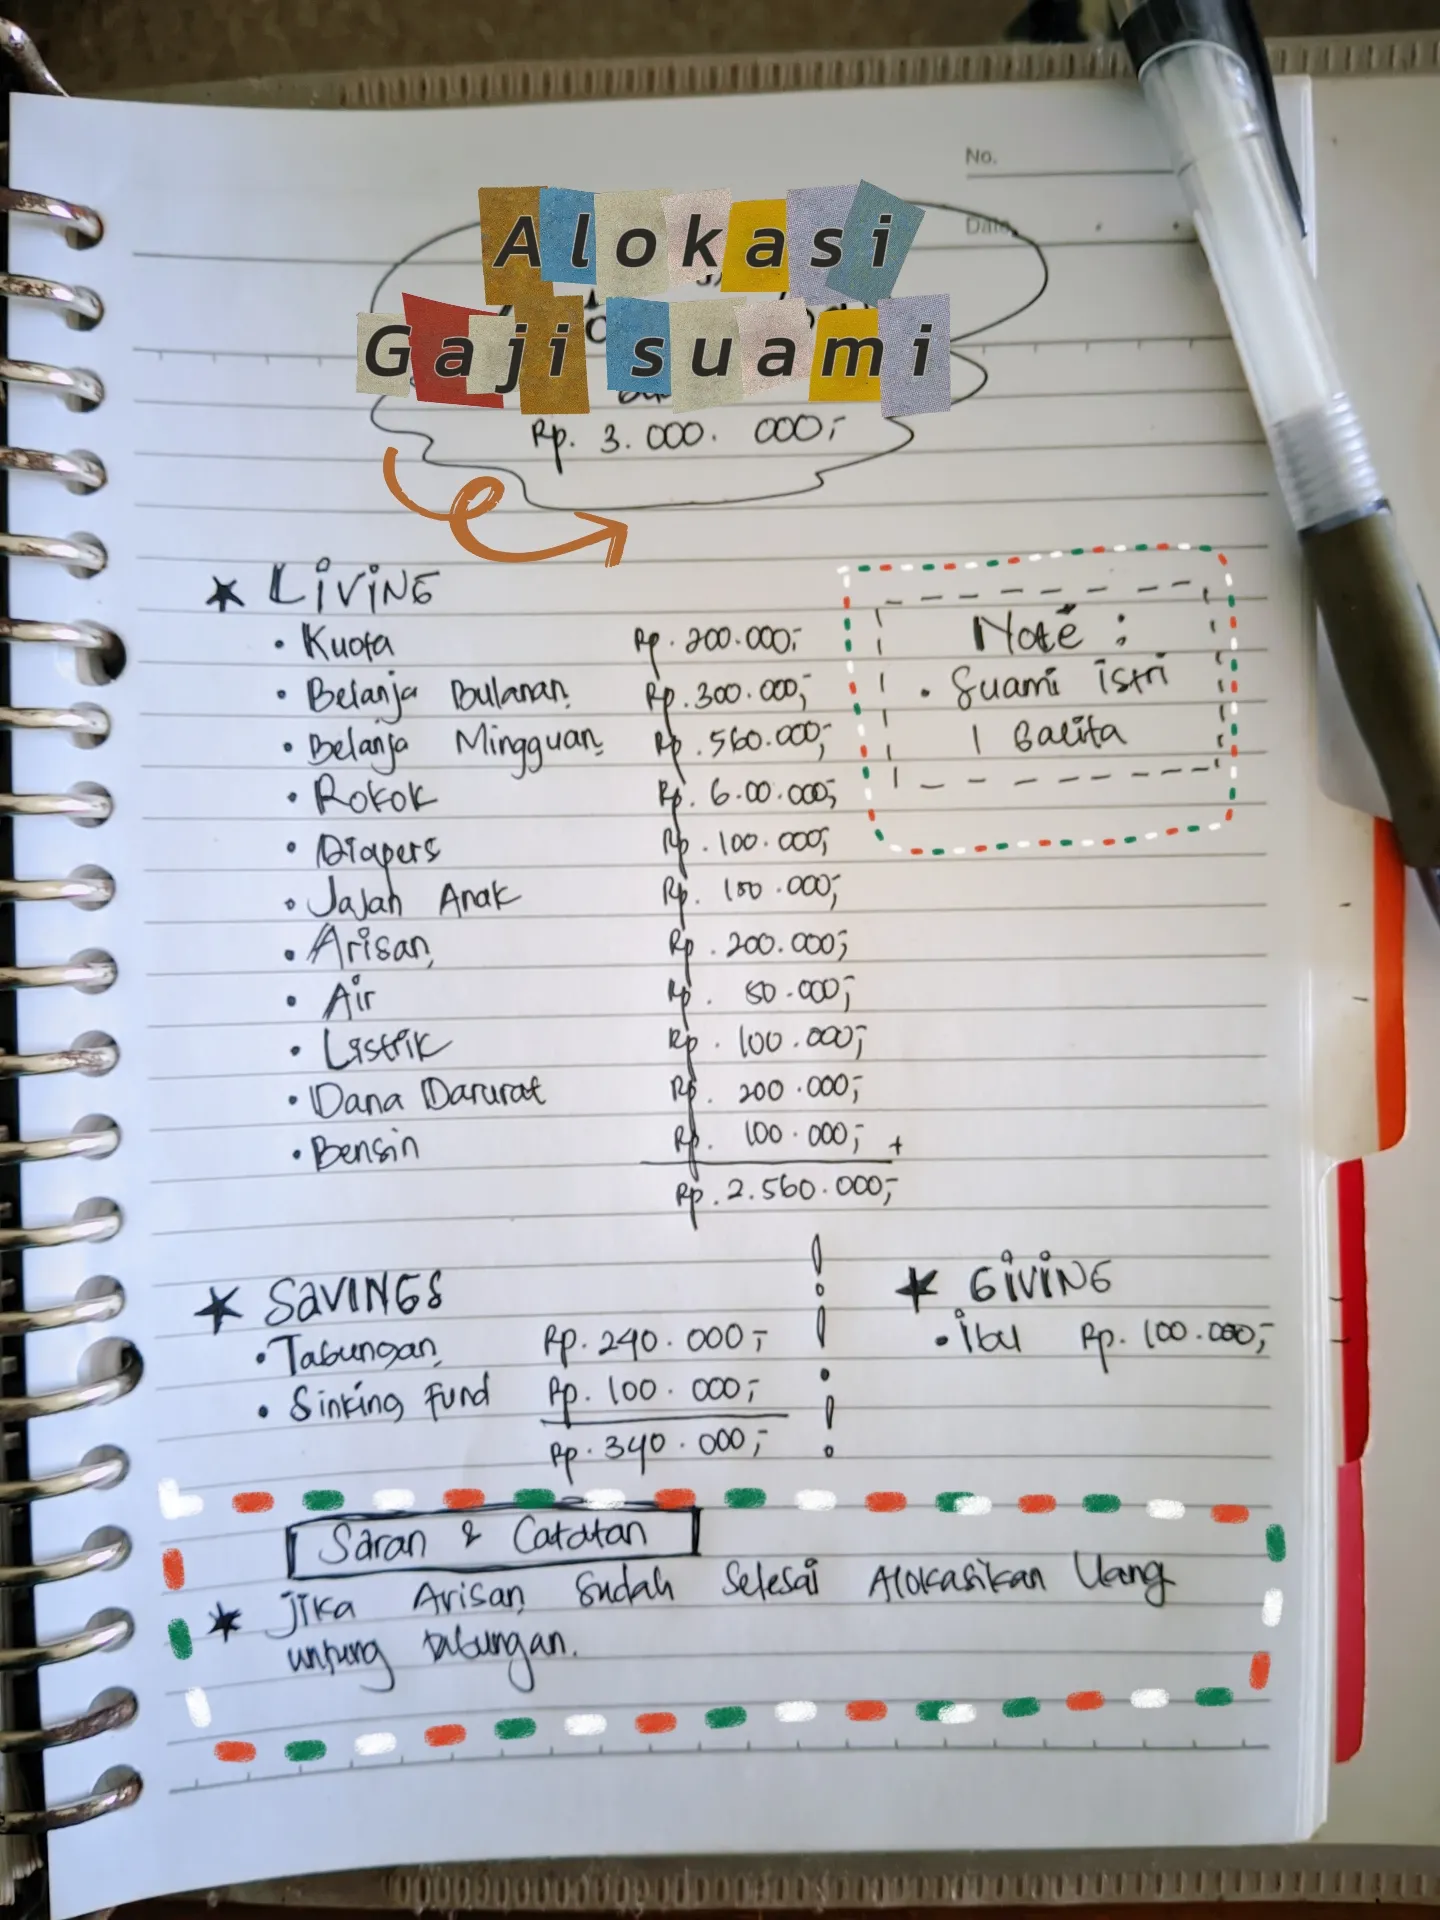 No.
Date
Alokasi
Gaji suami
Rp. 3.000.000,-
LiViNG
• Kuota Rp. 200.000,-
• Belanja Bulanan Rp. 300.000,-
• Belanja Mingguan Rp. 560.000,-
• Rokok Rp. 6.00.000,-
• Diapers Rp. 100.000,-
• Jajan Anak Rp. 150.000,-
• Arisan Rp. 200.000,-
• Air Rp. 50.000,-
• Listrik Rp. 100.000,-
• Dana Darurat Rp. 200.000,-
• Bensin Rp. 100.000,- +
Rp. 2.560.000,-
Note :
• Suami istri
1 Balita
SAVINGS
• Tabungan Rp. 240.000,-
• Sinking Fund Rp. 100.000,-
Rp. 340.000,-
GiViNG
• ibu Rp. 100.000,-
Saran & Catatan
jika Arisan sudah selesai Alokasikan Uang
untung tabungan.